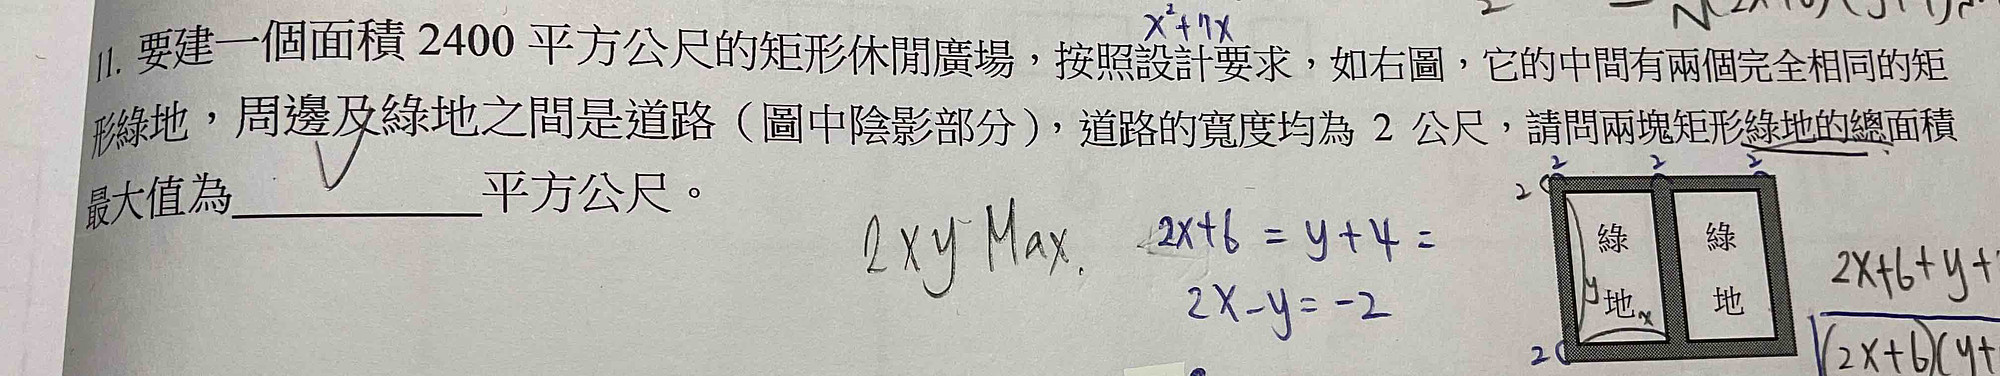 x²+7x
11. 要建一個面積 2400 平方公尺的矩形休閒廣場，按照設計要求，如右圖，它的中間有兩個完全相同的矩
形綠地，周邊及綠地之間是道路（圖中陰影部分），道路的寬度均為 2 公尺，請問兩塊矩形綠地的總面積
最大值為__________平方公尺。
2 2 2
2
2xy Max.
2x+6 = y+4 =
2x-y=-2
綠地 綠地
y x
2
2x+6+y+
√(2x+6)(y+